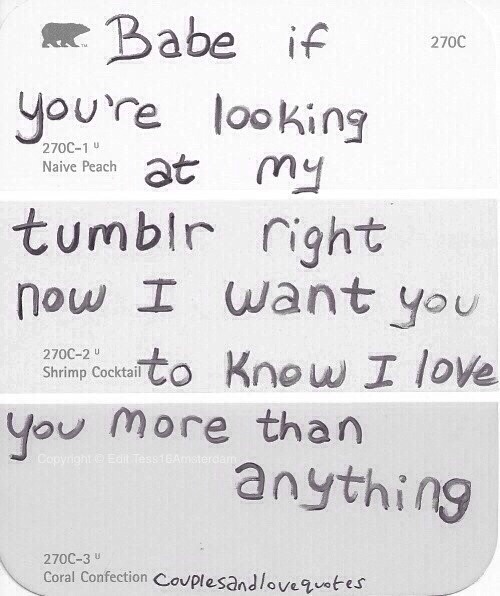 Babe if
270C
you're looking
270C-1 U
Naive Peach
at my
tumblr right
now I want you
270C-2 U
Shrimp Cocktail
to know I love
you more than
Copyright © Edit Tess16Amsterdam
anything
270C-3 U
Coral Confection
Couplesandlovequotes